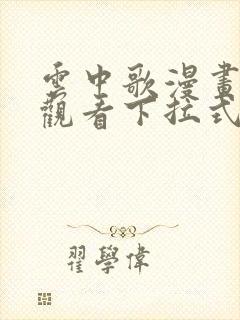 雲中歌漫畫
觀看下拉式
翟學偉